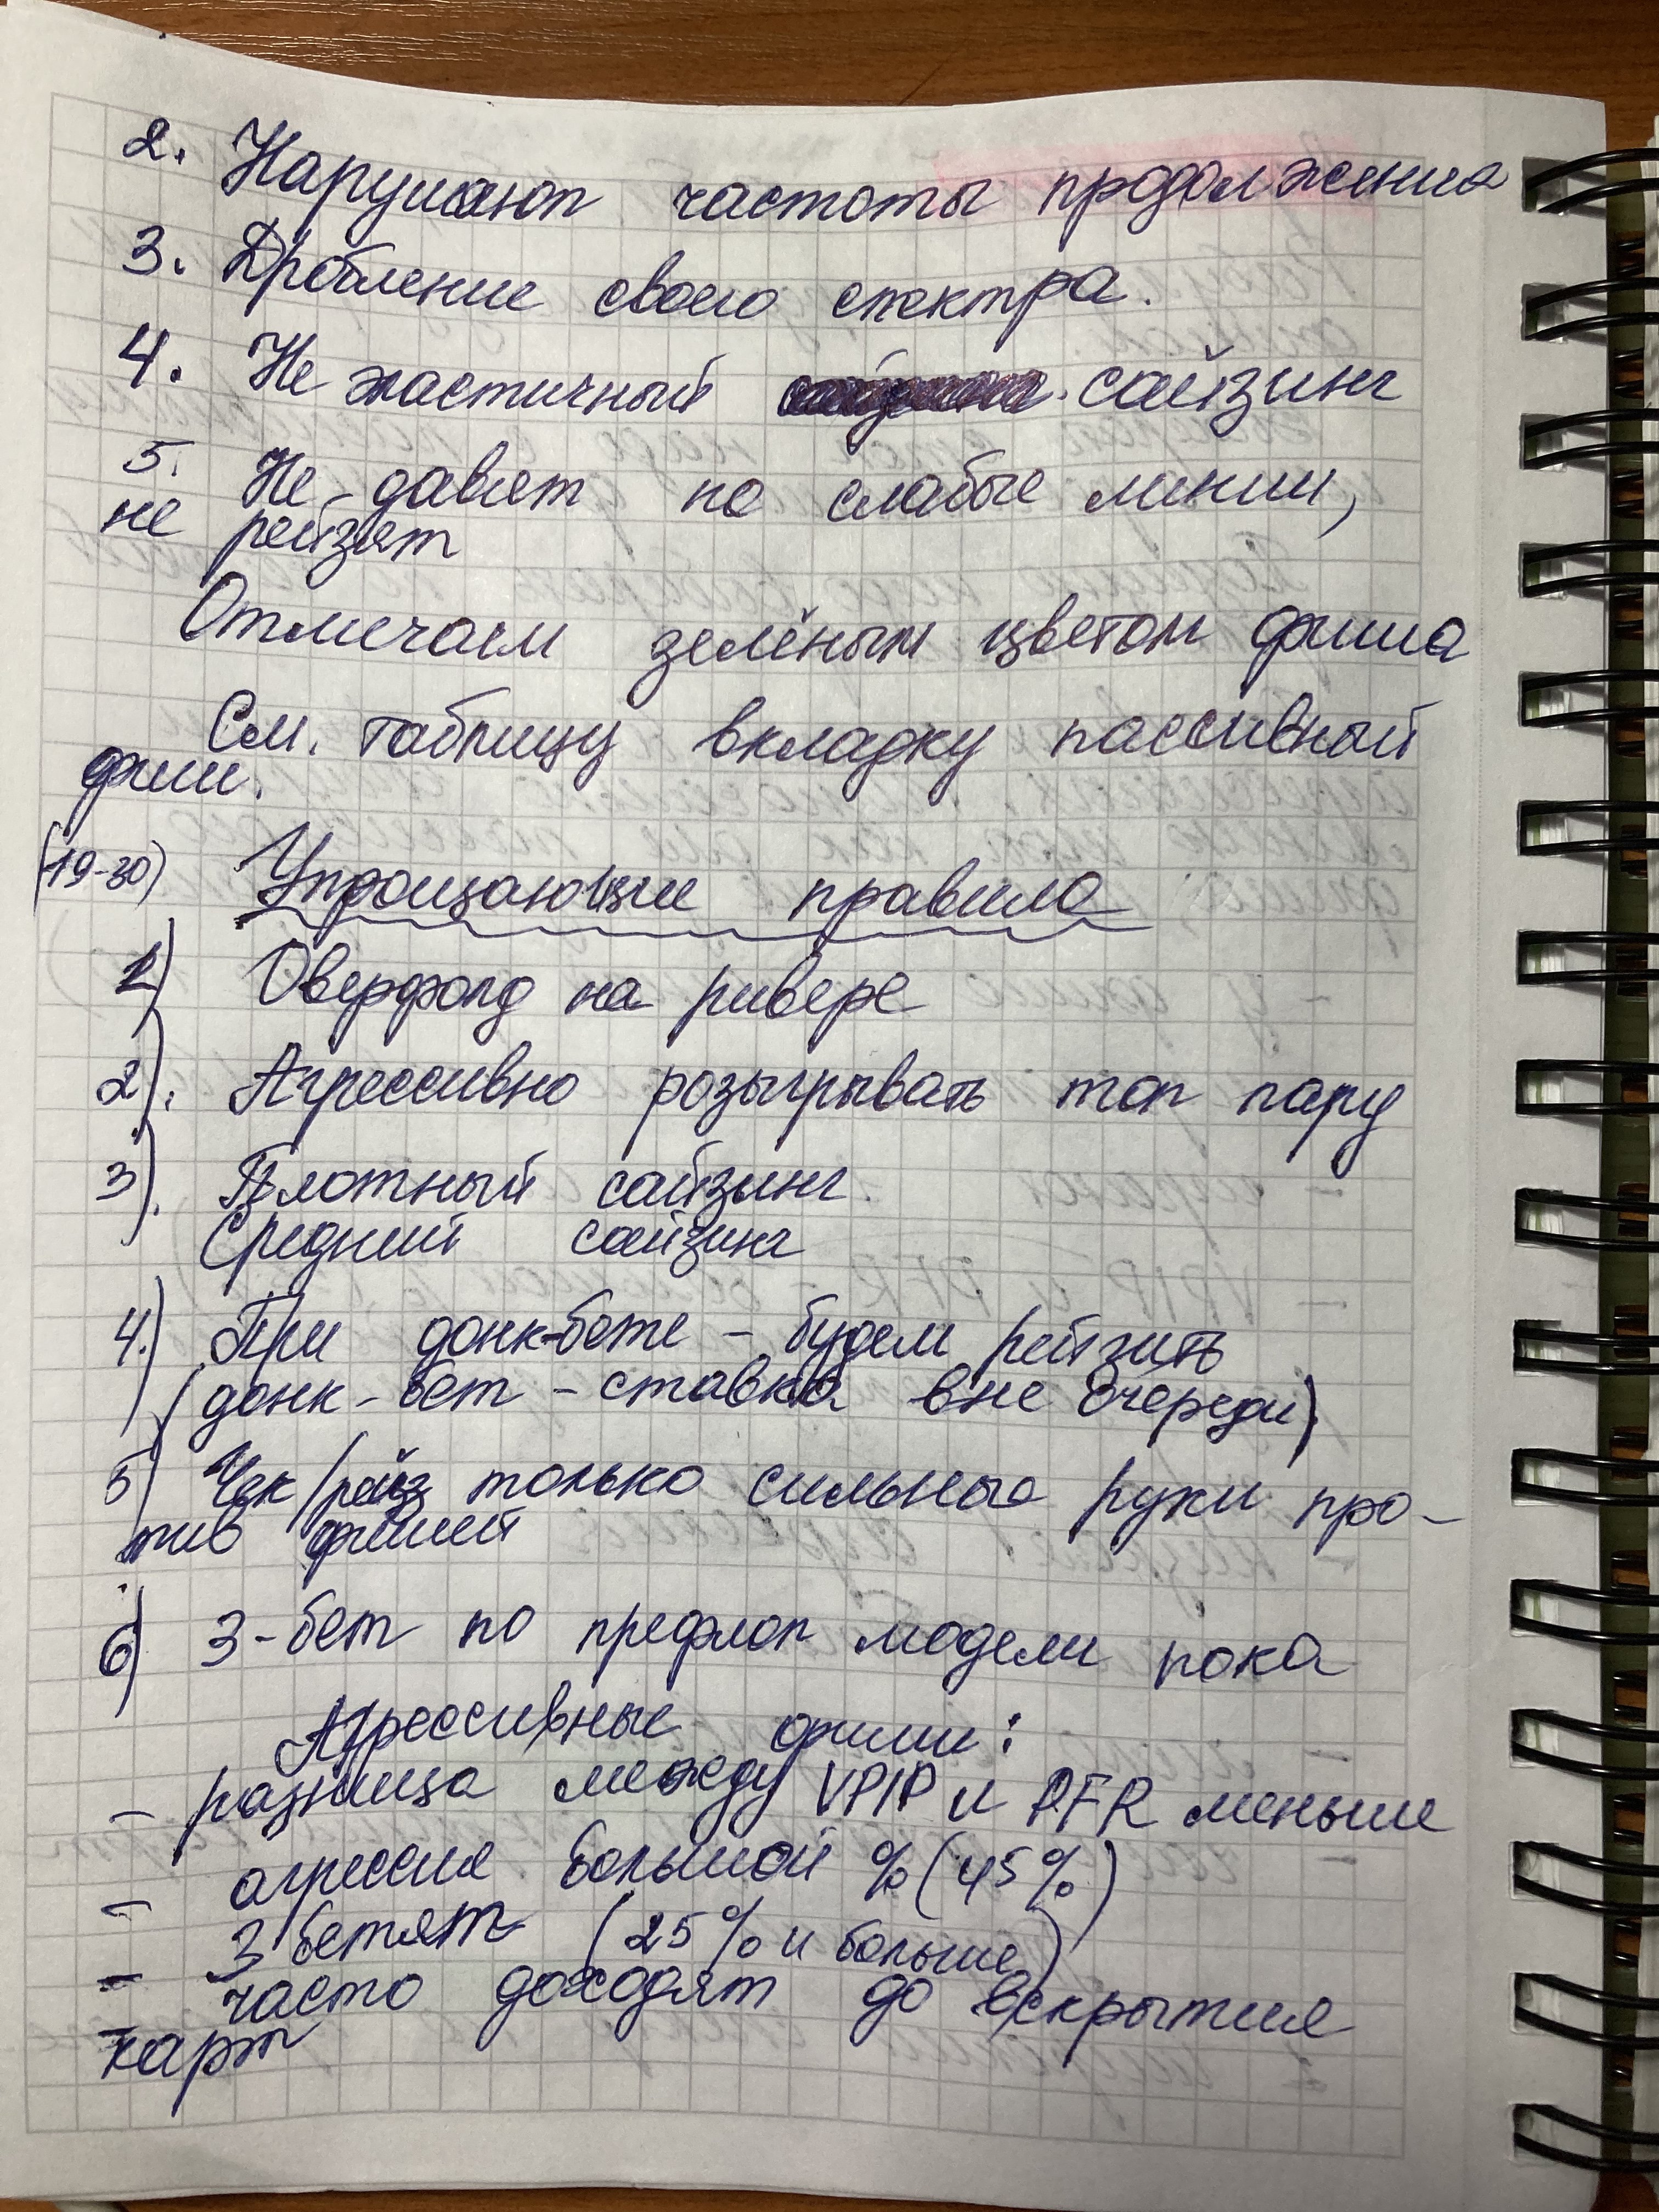 2. Нарушают частоты продолжения
3. Дробление своего спектра.
4. Не эластичный сайзинг
5. Не давят на слабые линии,
не рейзят
Отмечаем зелёным цветом фиша
См. таблицу вкладку пассивный
фиш.
(19-30) Упрощающие правила
1) Оверфолд на ривере
2). Агрессивно розыгрывать топ пару
3). Плотный сайзинг.
Средний сайзинг
4.) При донк-бете - будем рейзить
(донк-бет - ставка вне очереди)
5) Чек/рейз только сильные руки про-
тив фишей
6) 3-бет по префлоп модели пока
Агрессивные фиши:
- разница между VPIP и PFR меньше
- агрессия большой % (45%)
- 3 бетят (25% и больше)
- часто доходят до вскрытия
карт